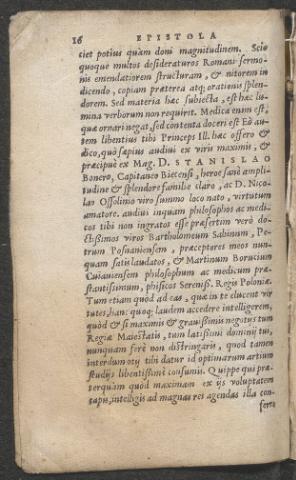 16 EPISTOLA
ciet potius quàm doni magnitudinem. Scio
quoque multos desideraturos Romani sermo-
nis emendatiorem structuram, & nitorem in
dicendo, copiam præterea atq; orationis splen-
dorem. Sed materia hæc subiecta, est hæc li-
mina verborum non requirit. Medica enim est,
quæ ornari negat, sed contenta doceri est Eò au-
tem libentius tibi Princeps Ill. hæc offero &
dico, quò sæpius audiui ex viris maximis, &
præcipuè ex Mag. D. STANISLAO
Bonero, Capitaneo Biecensi, heroe sanè ampli-
tudine & splendore familiæ claro, ac D. Nico-
lao Ossolinio viro summo loco nato, virtutum
amatore. audiui inquam philosophos ac medi-
cos tibi non ingratos esse præsertim verò do-
ctißimos viros Bartholomeum Sabinum, Pe-
trum Posnaniensem, præceptores meos nun-
quam satis laudatos, & Martinum Borucium
Cuiauiensem philosophum ac medicum præ-
stantissimum, phisicos Sereniß. Regis Poloniæ.
Tum etiam quòd ad eas, quæ in te elucent vir
tutes, han: quoq; laudem accedere intelligerem,
quòd & si maximis & grauißimis negotijs tum
Regiæ Maiestatis, tum latißimi dominij tui,
nunquam ferè non distringaris, quod tamen
interdum otij tibi datur id optimarum artium
studijs libentißimè consumis. Quippe qui præ-
terquàm quòd maximam ex ijs voluptatem
capis, intelligis ad magnas res agendas illa con-
ferre